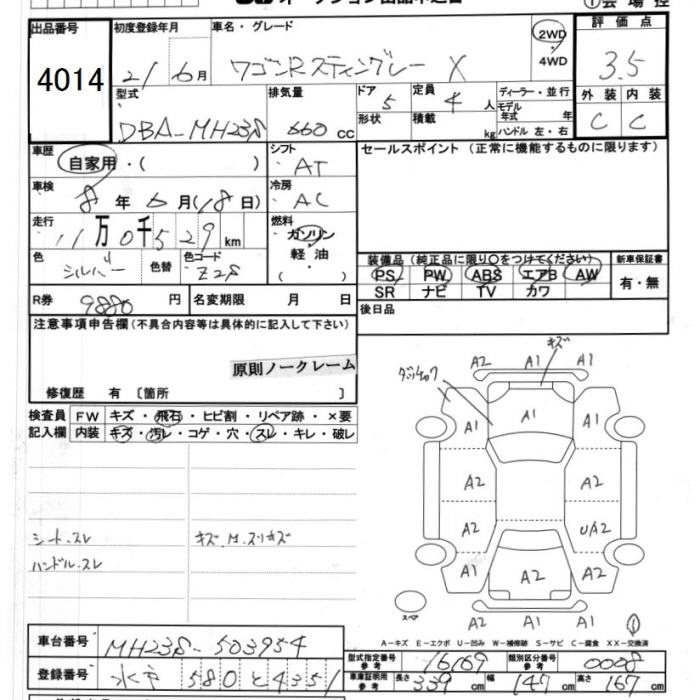 出品番号 初度登録年月 車名・グレード 2WD 評価点
4014 21 6月 ワゴンRスティングレー X 4WD 3.5
型式 排気量 ドア 5 定員 4人 ディーラー・並行 外装 内装
DBA-MH23S 660 cc 形状 積載 kg モデル年式 年 C C
ハンドル 左・右
車歴 自家用・( ) シフト AT セールスポイント (正常に機能するものに限ります)
車検 8年6月(18日) 冷房 AC
走行 11万0千529km 燃料 ガソリン
軽油
( )
色 シルバー 色替 色コード Z2S
装備品 (純正品に限り○をつけてください) 新車保証書
PS PW ABS エアB AW 有・無
SR ナビ TV カワ
R券 9880円 名変期限 月 日 後日品
注意事項申告欄(不具合内容等は具体的に記入して下さい)
原則ノークレーム
修復歴 有 〔箇所 〕
検査員 FW キズ・飛石・ヒビ割・リペア跡・×要
記入欄 内装 キズ・汚レ・コゲ・穴・スレ・キレ・破レ
シート.スレ キズ.M.スリキズ
ハンドル.スレ
キズ
A2 A1 A1
A1 A1 A1
A2 A2
A2 U/A2
A1 A2 A2
A1 A1
スペア
A-キズ E-エクボ U-凹み W-補修跡 S-サビ C-腐食 XX-交換済
車台番号 MH23S-503954
型式指定番号 参考 16169 類別区分番号 参考 0008
登録番号 水戸 580 と 4351
車庫証明用 参考 長さ 339cm 幅 147cm 高さ 167cm